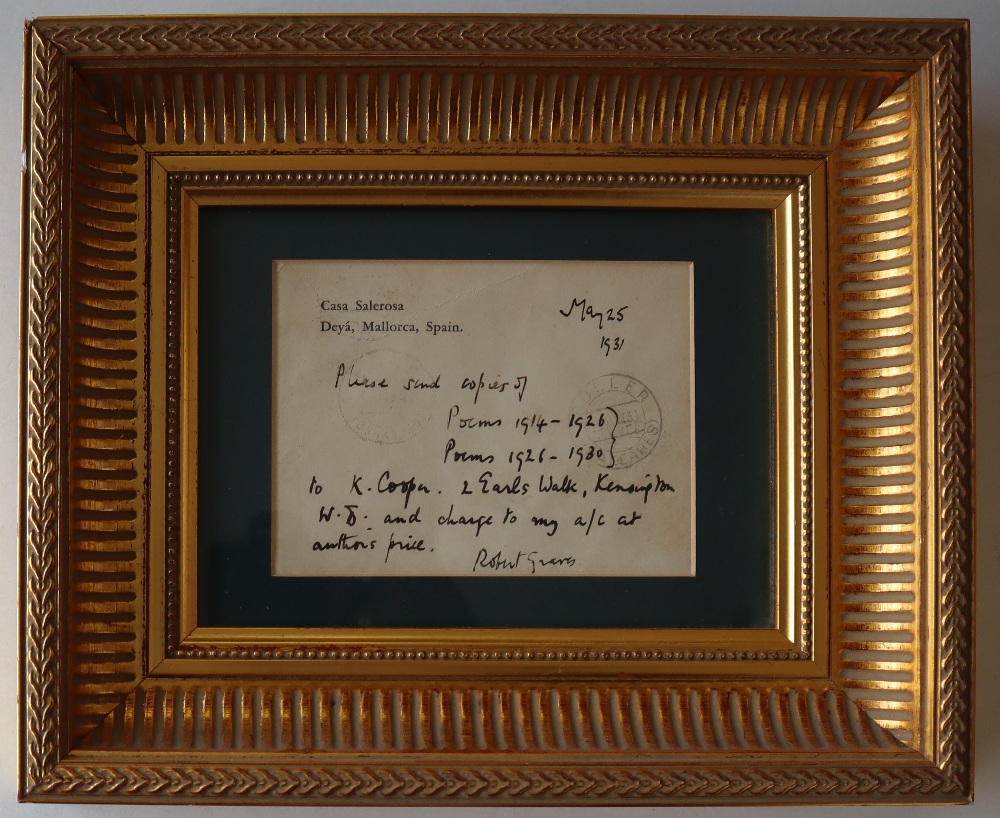 Casa Salerosa
Deyá, Mallorca, Spain.
May 25
1931
Please send copies of
Poems 1914-1926
Poems 1926-1930
to K. Cooper. 2 Earls Walk, Kensington
W.8. and charge to my a/c at
authors price.
Robert Graves
OLLER